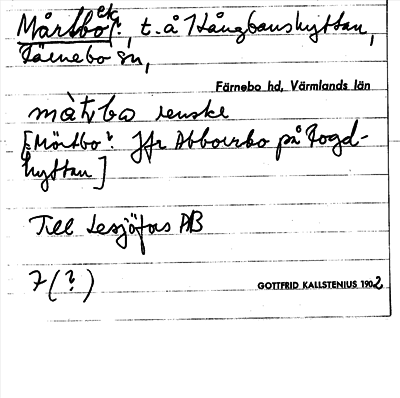 Mårtbo?, t. å Långbanshyttan,
Färnebo sn,
Färnebo hd, Värmlands län
[Mörtbo? Jfr Abborrbo på Fogd-
hyttan]
Till Lesjöfors AB
7(?)
GOTTFRID KALLSTENIUS 1902